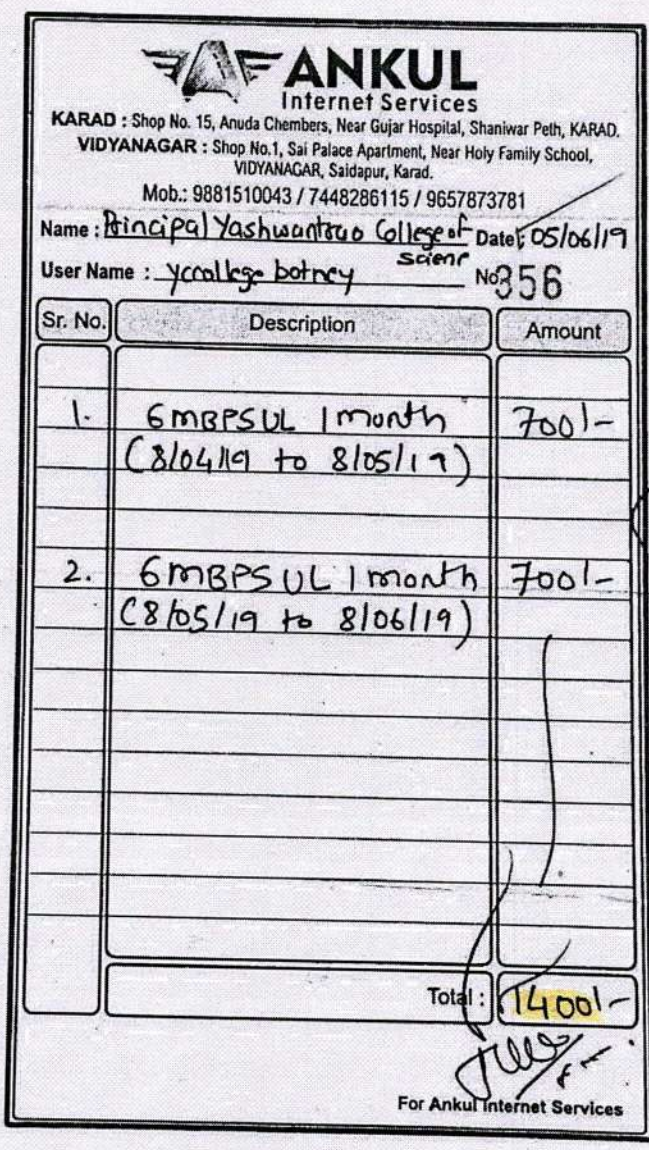 ANKUL
Internet Services
KARAD : Shop No. 15, Anuda Chembers, Near Gujar Hospital, Shaniwar Peth, KARAD.
VIDYANAGAR : Shop No.1, Sai Palace Apartment, Near Holy Family School,
VIDYANAGAR, Saidapur, Karad.
Mob.: 9881510043 / 7448286115 / 9657873781
Name : Principal Yashwantrao College of Date : 05/06/19
scienc
User Name : yccollege botney No. 356
Sr. No. Description Amount
1. 6MBPSUL 1 month 700/-
(8/04/19 to 8/05/19)
2. 6MBPS UL 1 month 700/-
(8/05/19 to 8/06/19)
Total : 1400/-
For Ankul Internet Services